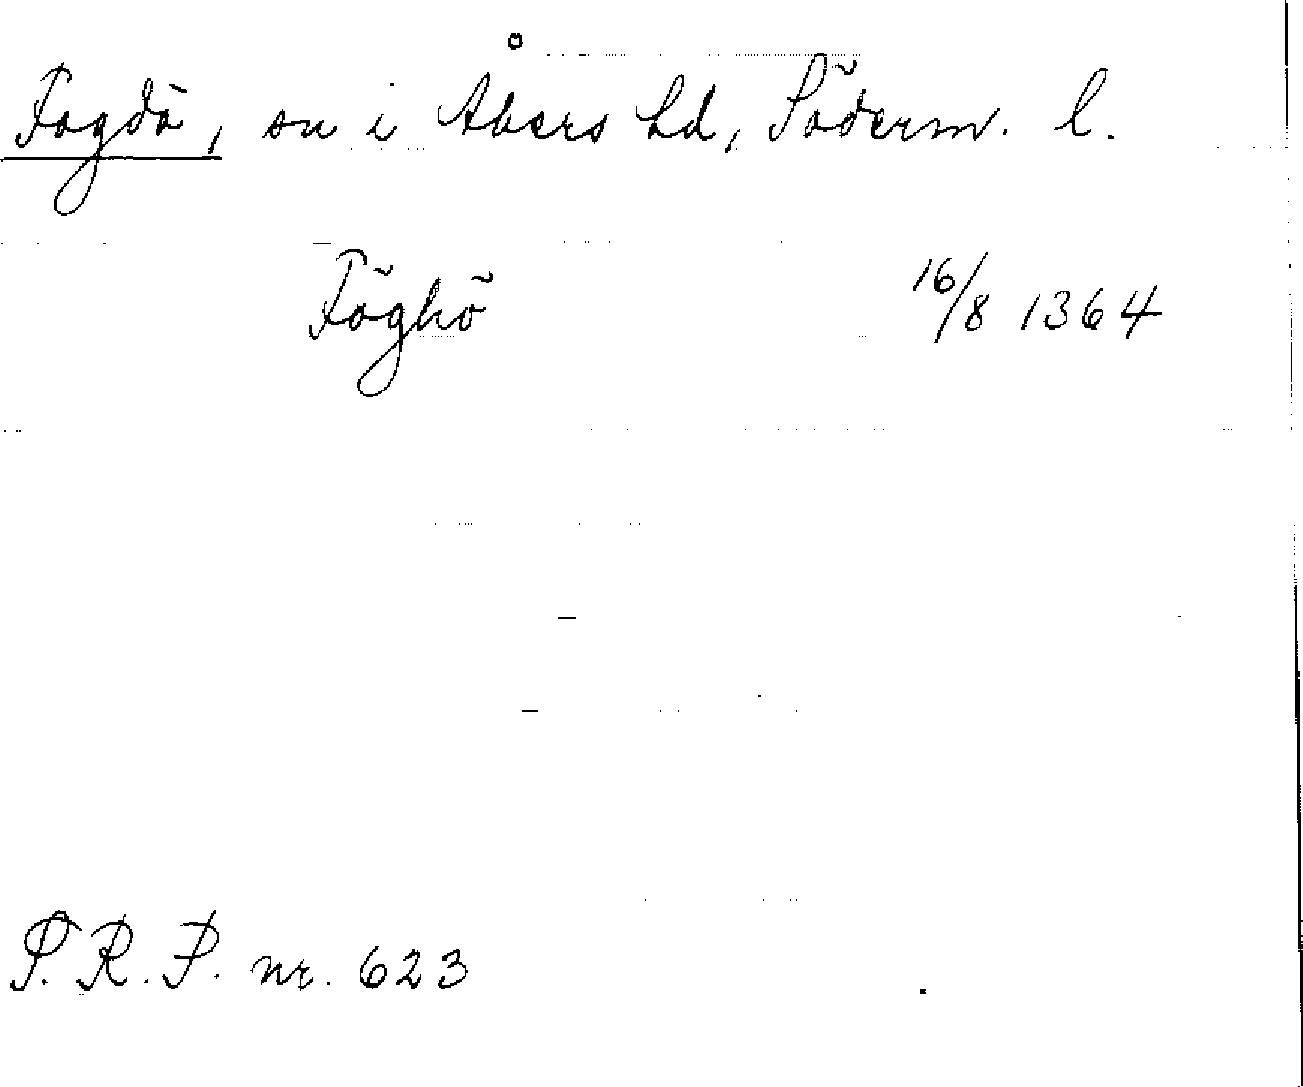 Fogdö, sn i Åkers hd, Söderm. l.
Föghö 16/8 1364
S.R.P. nr. 623